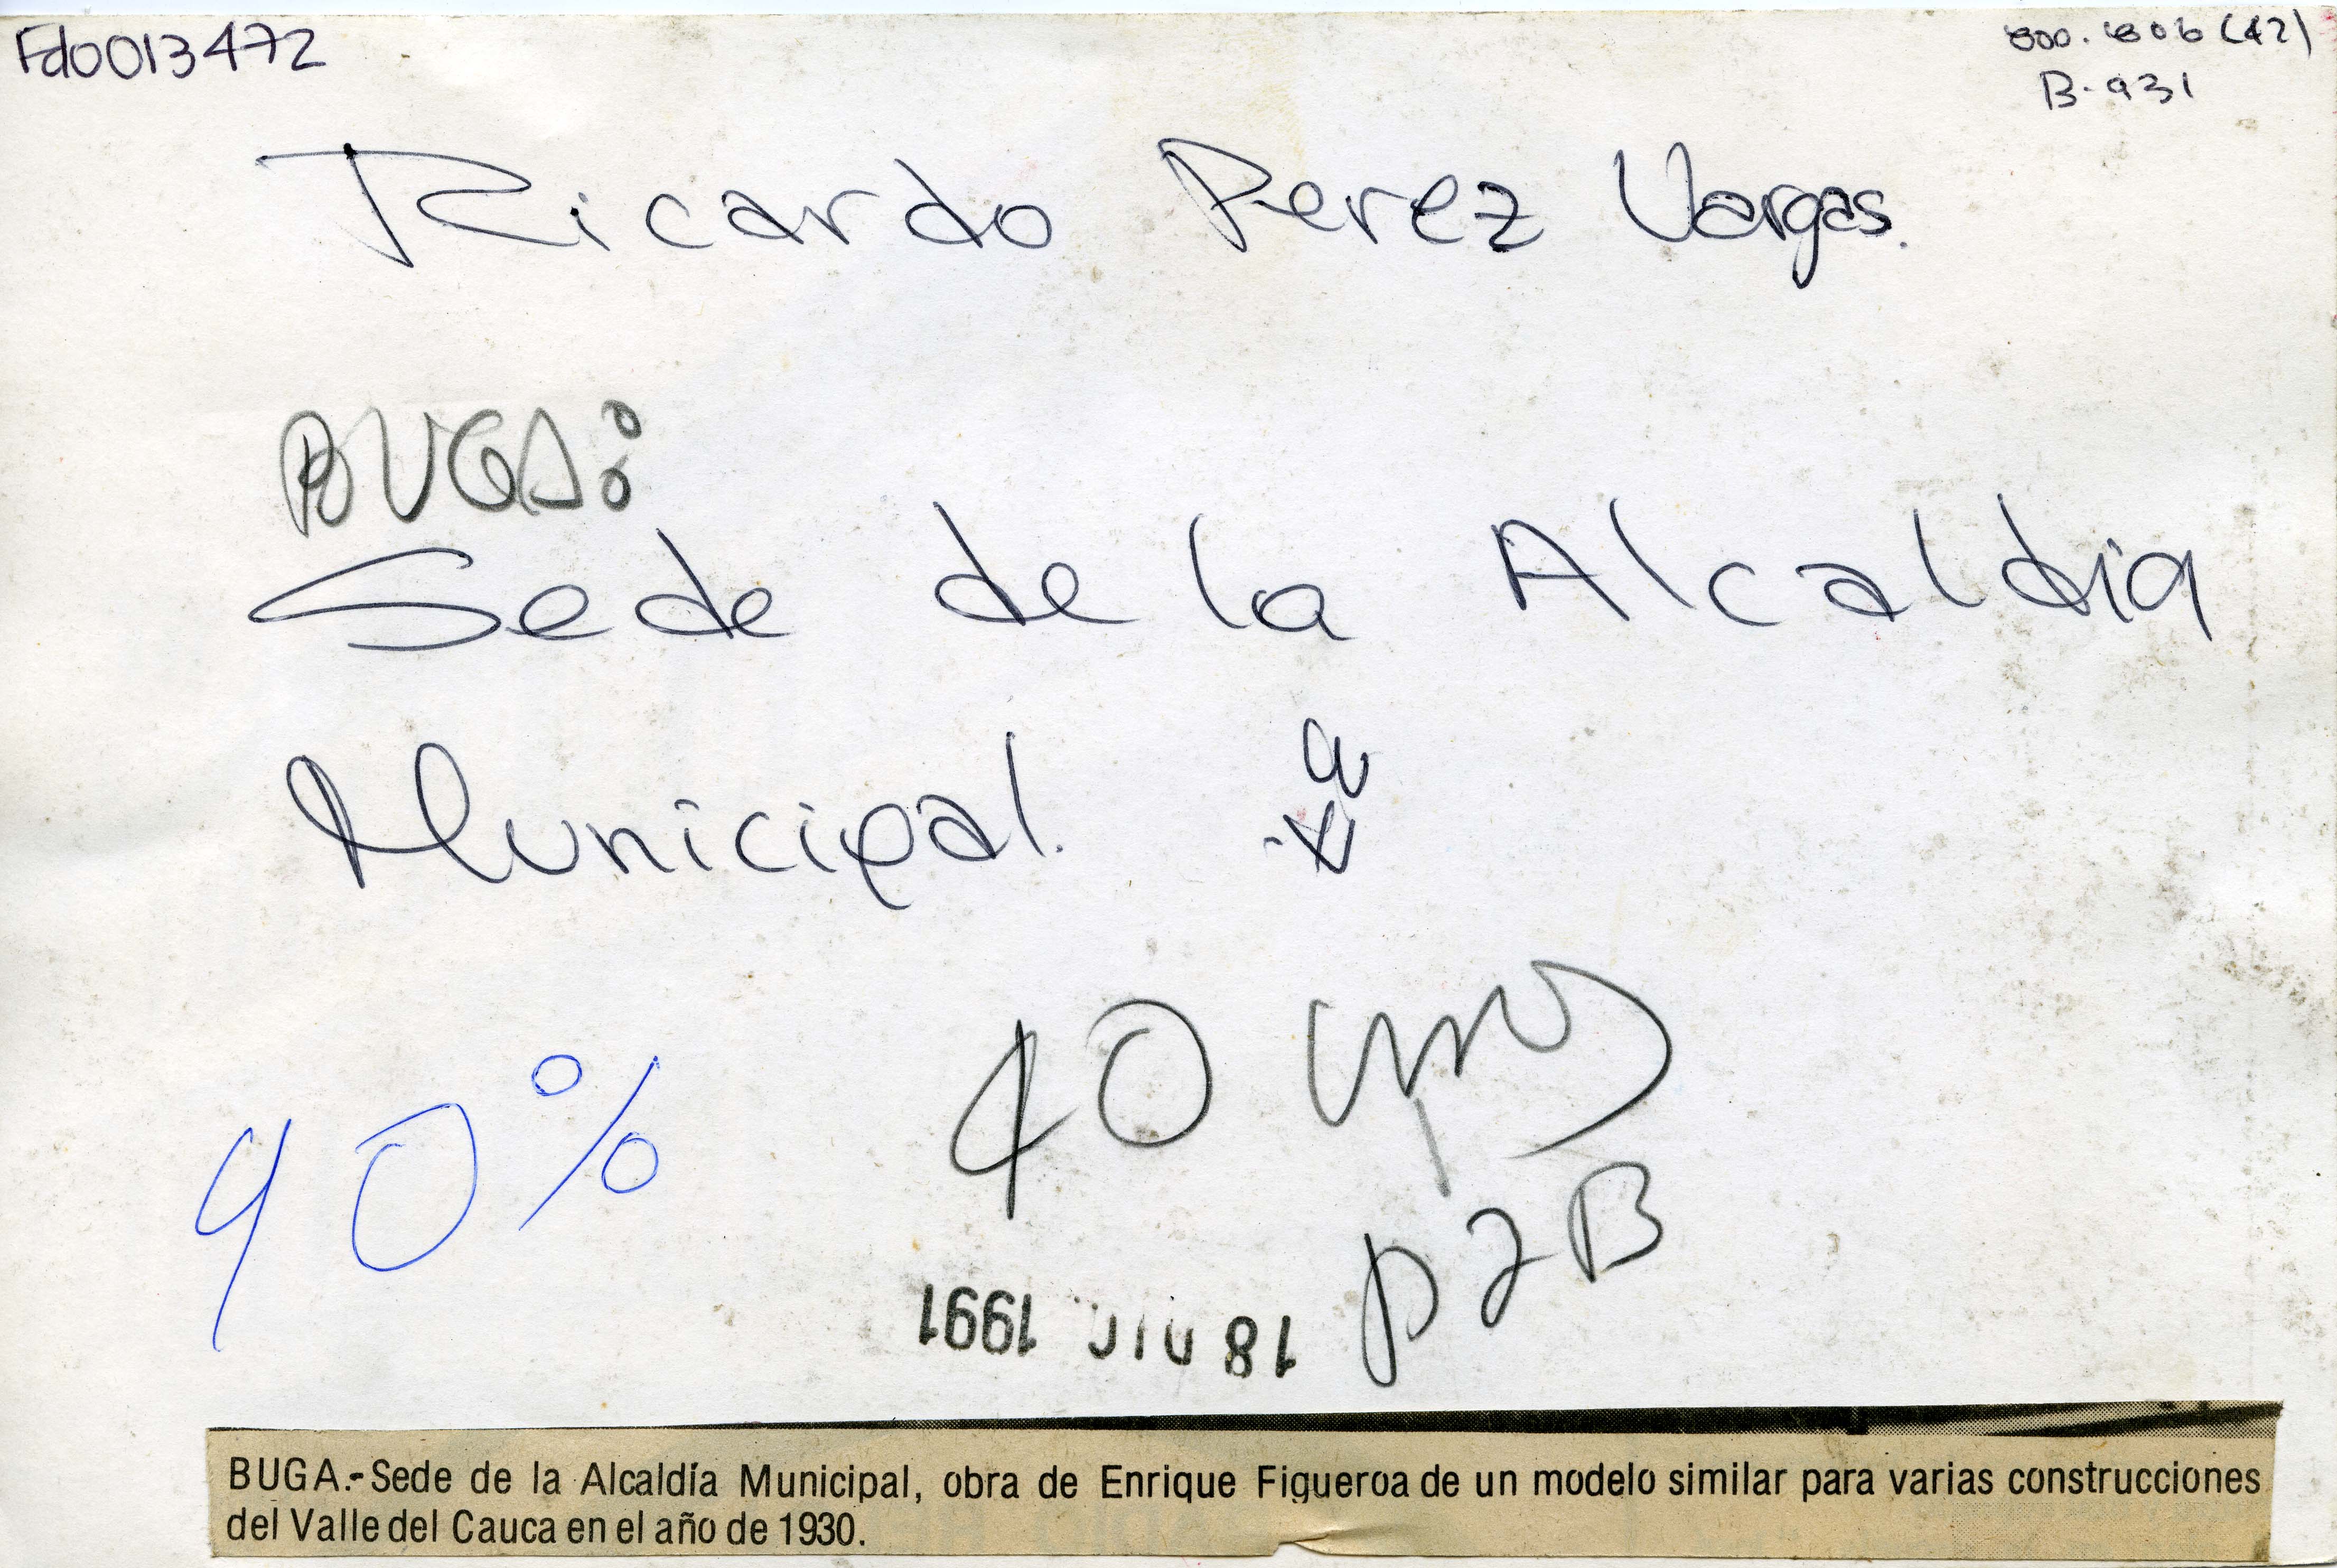 Fd0013472
B-931
Ricardo Perez Vargas.
BUGA:
Sede de la Alcaldia
Municipal.
40
90%
P2B
18 JUL 1991
BUGA.-Sede de la Alcaldía Municipal, obra de Enrique Figueroa de un modelo similar para varias construcciones
del Valle del Cauca en el año de 1930.